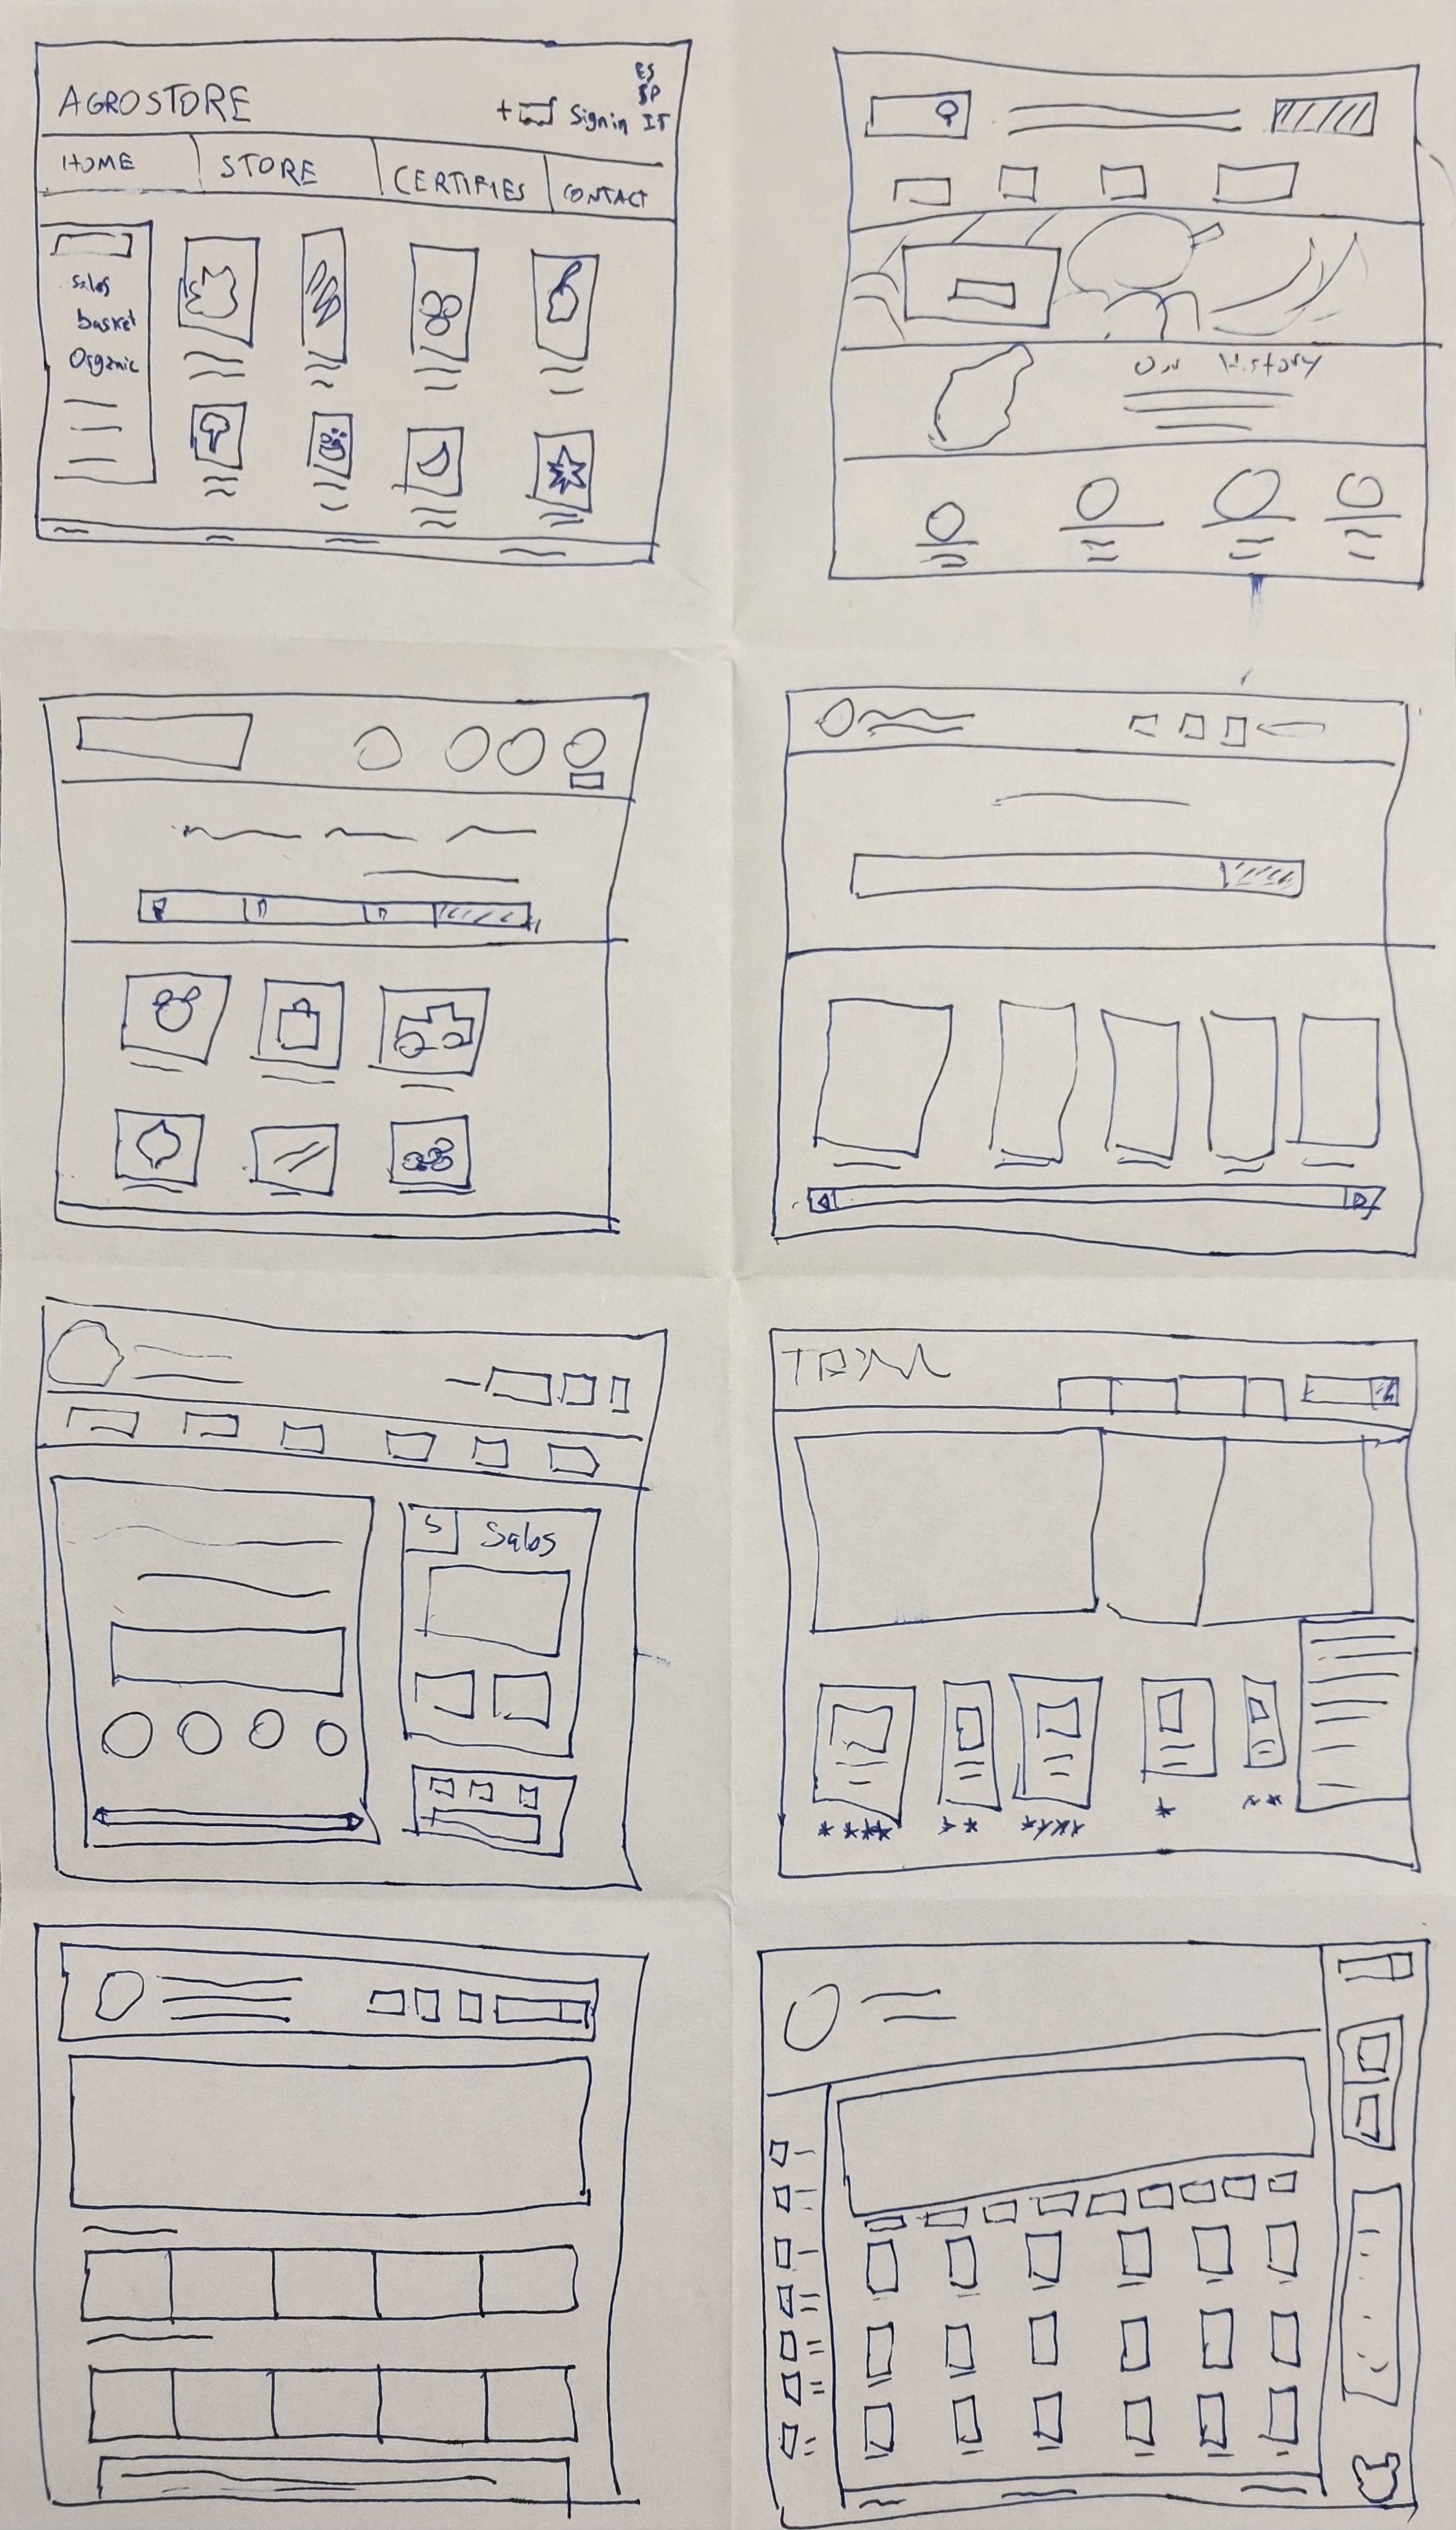 AGROSTORE
+ Sign in
ES
SP
IT
HOME STORE CERTIFIES CONTACT
Sales
basket
Organic
History
S Sales